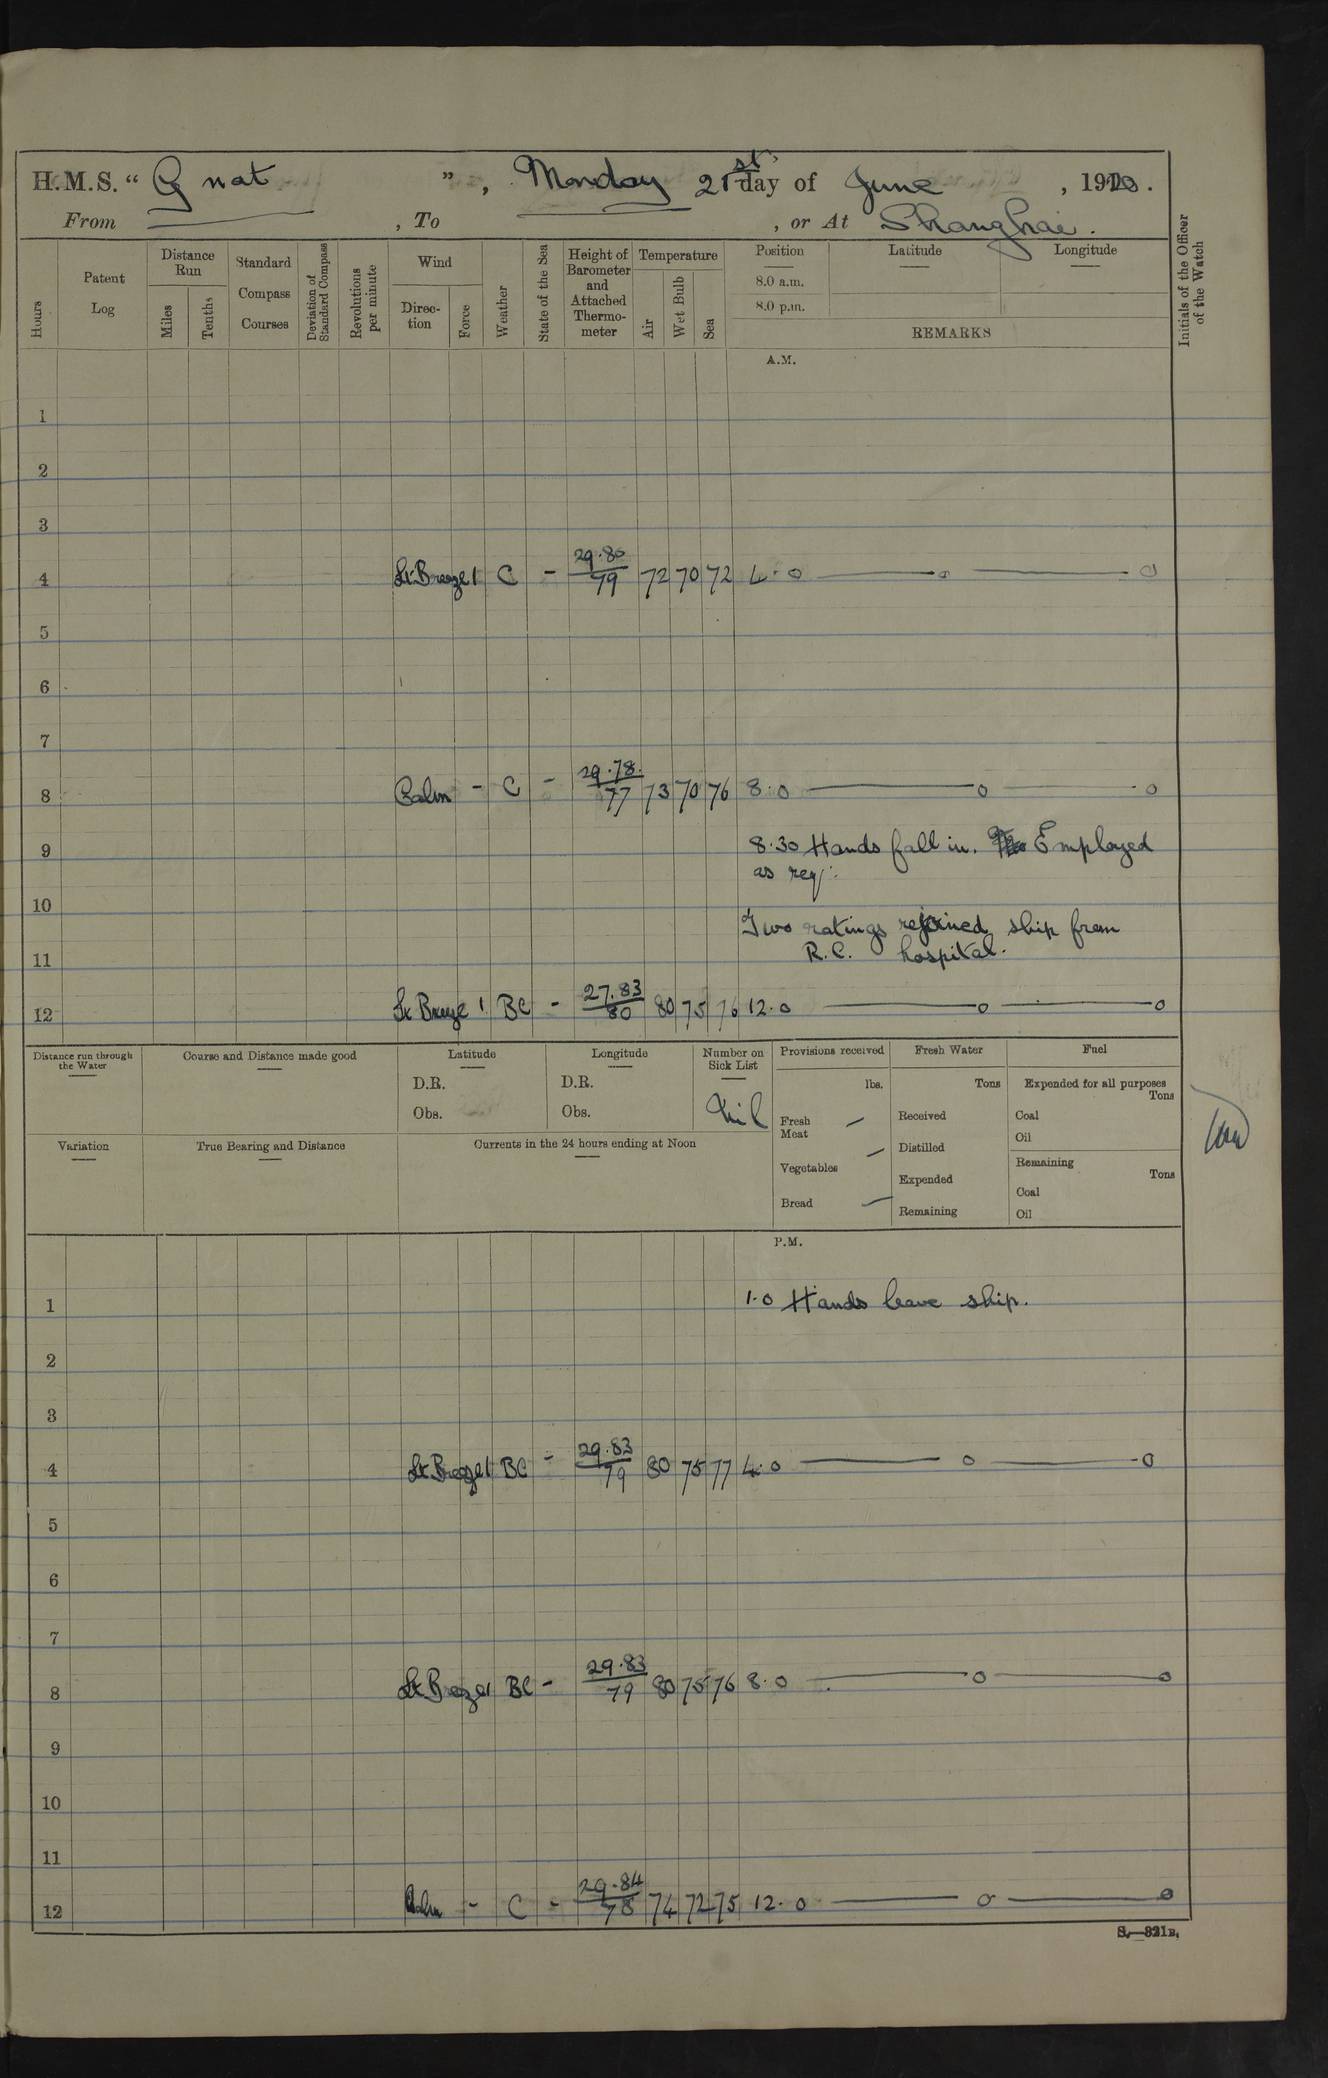 H.M.S. “ Gnat ” , Monday 21st day of June , 1920.
From , To , or At Shanghai.
Hours
Patent Log
Distance Run
Miles
Tenths
Standard Compass Courses
Deviation of Standard Compass
Revolutions per minute
Wind
Direc-tion
Force
Weather
State of the Sea
Height of Barometer and Attached Thermo-meter
Temperature
Air
Wet Bulb
Sea
Position
8.0 a.m.
8.0 p.m.
Latitude
Longitude
REMARKS
Initials of the Officer of the Watch
A.M.
1
2
3
4 Lt. Breeze 1 C - 29.80/79 72 70 72 4.0 — o — o
5
6
7
8 Calm - C - 29.78./77 73 70 76 8.0 — o — o
9 8.30 Hands fall in. Employed
as req:
10
Two ratings rejoined ship from
11 R.C. hospital.
12 Lt Breeze 1 BC - 27.83/80 80 75 76 12.0 — o — o
Distance run through the Water
Course and Distance made good
Latitude
D.R.
Obs.
Longitude
D.R.
Obs.
Number on Sick List
Nil
Provisions received
lbs.
Fresh Meat —
Vegetables —
Bread —
Fresh Water
Tons
Received
Distilled
Expended
Remaining
Fuel
Expended for all purposes
Tons
Coal
Oil
Remaining
Tons
Coal
Oil
Variation
True Bearing and Distance
Currents in the 24 hours ending at Noon
P.M.
1 1.0 Hands leave ship.
2
3
4 Lt Breeze 1 BC - 29.83/79 80 75 77 4.0 — o — o
5
6
7
8 Lt Breeze 1 BC - 29.83/79 80 75 76 8.0 — o — o
9
10
11
12 Calm - C - 29.84/78 74 72 75 12.0 — o — o
S.—321B.